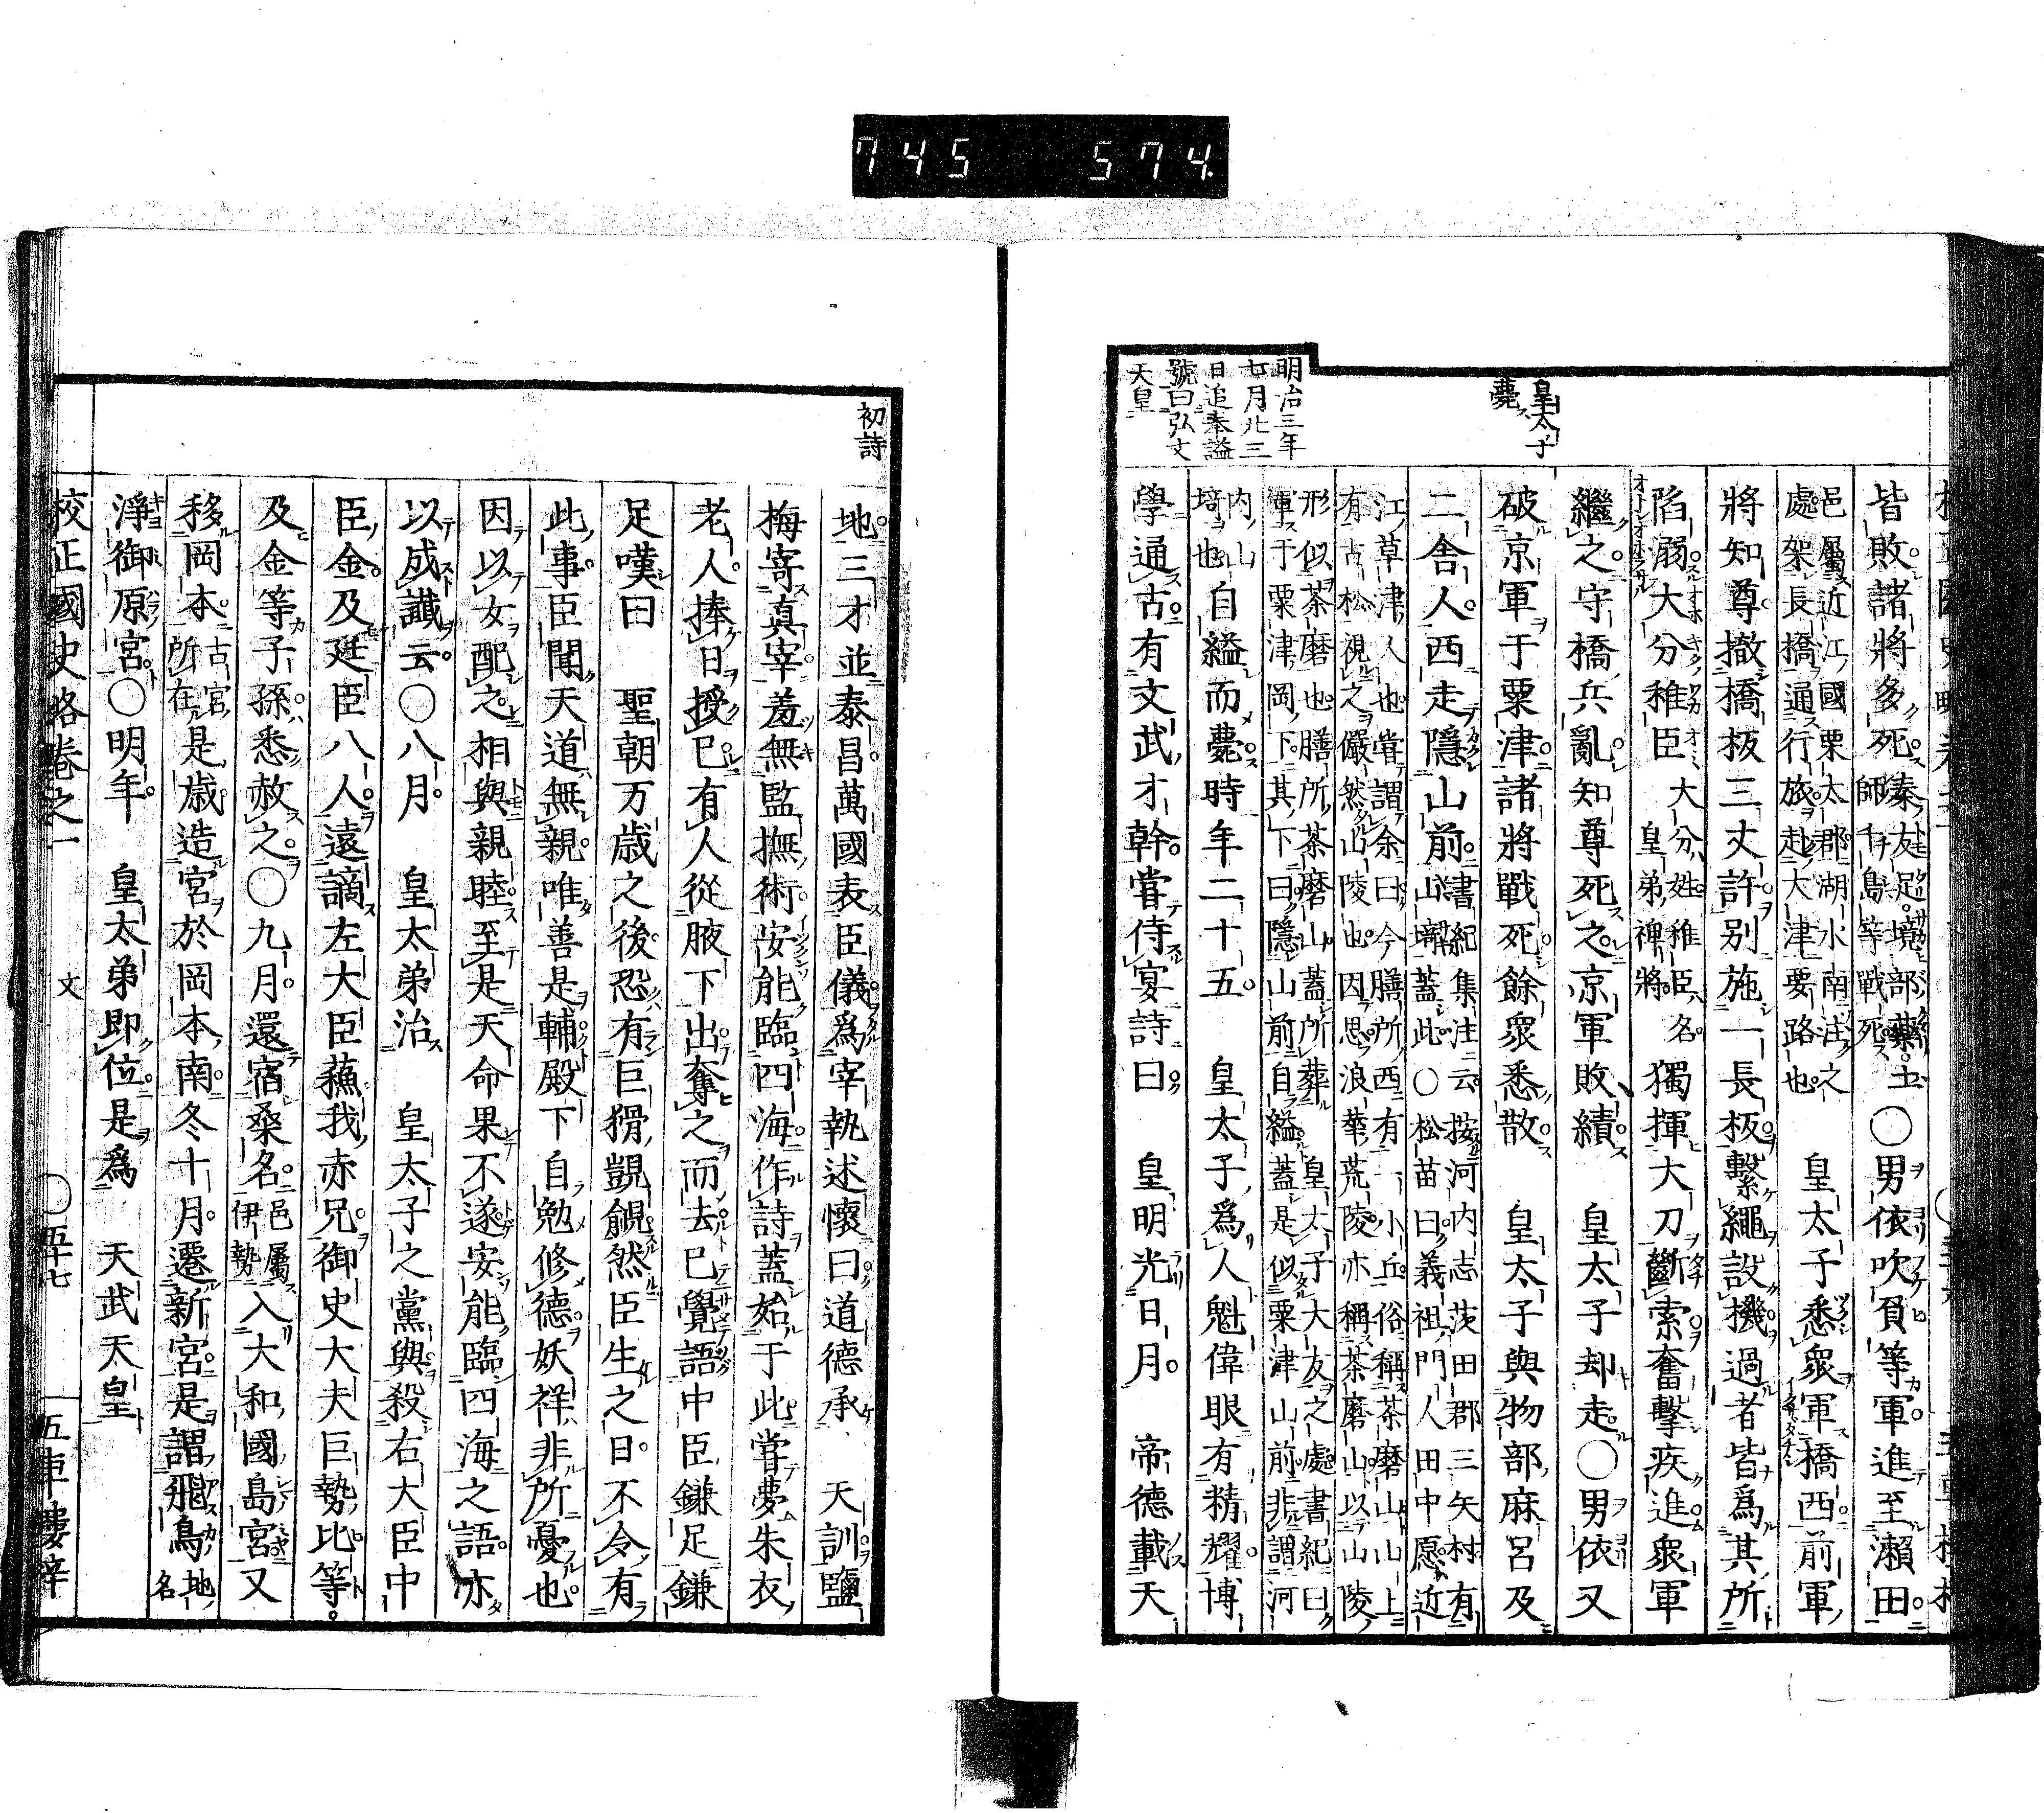 745 574.
皇太子
薨
明治三年
七月廿三
日追奉謚
號曰弘文
天皇
皆敗諸將多死秦友足境部藥土師千島等戰死〇男依吹負等軍進至瀬田
邑屬近江國栗太郡湖水南注之處架長橋通行旅赴大津要路也 皇太子悉衆軍橋西前軍
將知尊撤橋板三丈許別施一長板繫繩設機過者皆爲其所
陷溺大分稚臣大分姓稚臣名皇弟裨將獨揮大刀斷索奮擊疾進衆軍
繼之守橋兵亂知尊死之京軍敗績 皇太子却走〇男依又
破京軍于粟津諸將戰死餘衆悉散 皇太子與物部麻呂及
二舍人西走隱山前書紀集注云按河内志茨田郡三矢村有山崎蓋此〇松苗曰義祖門人田中愿近
江草津人也嘗謂余曰今膳所西有一小丘俗稱茶磨山山上有古松視之儼然山陵也因思浪華荒陵亦稱茶磨山以山陵
形似茶磨也膳所茶磨山蓋所葬 皇太子大友之處書紀曰軍于粟津岡下其下曰隱山前自縊蓋是似粟津山前非謂河
内山培也自縊而薨時年二十五 皇太子爲人魁偉眼有精耀博
學通古有文武才幹嘗侍宴詩曰 皇明光日月 帝德載天
初詩
地三才並泰昌萬國表臣儀爲宰執述懷曰道德承 天訓鹽
梅寄真宰羞無監撫術安能臨四海作詩蓋始于此嘗夢朱衣
老人捧日授巳有人從腋下出奪之而去巳覺語中臣鎌足鎌
足嘆曰 聖朝万歳之後恐有巨猾覬覦然臣生之日不令有
此事臣聞天道無親唯善是輔殿下自勉修德妖祥非所憂也
因以女配之相與親睦至是天命果不遂安能臨四海之語亦
以成讖云〇八月 皇太弟治 皇太子之黨與殺右大臣中
臣金及廷臣八人遠謫左大臣蘓我赤兄御史大夫巨勢比等
及金等子孫悉赦之〇九月還宿桑名邑屬伊勢入大和國島宮又
移岡本古宮所在是歳造宮於岡本南冬十月遷新宮是謂飛鳥地名
淨御原宮〇明年 皇太弟即位是爲 天武天皇
校正國史略卷之一 文 〇五十七 五車樓梓